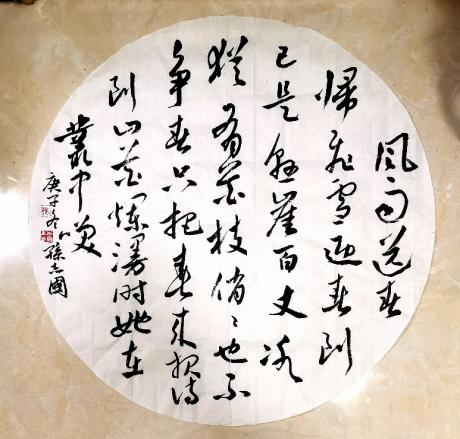 风雨送春
歸飛雪迎春到
已是懸崖百丈冰
猶有花枝俏〻也不
争春只把春来報待
到山花爛漫时她在
叢中笑
庚子冬 孫志國